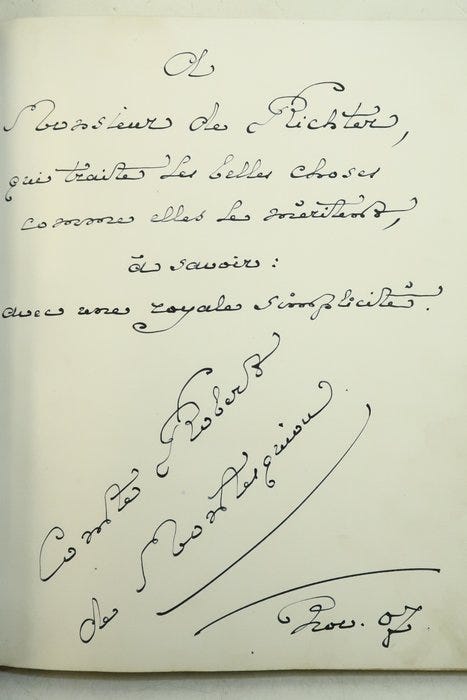 A
Monsieur de Richter,
qui traite les belles choses
comme elles le méritent,
à savoir :
avec une royale simplicité.
Comte Robert
de Montesquiou
Nov. 07